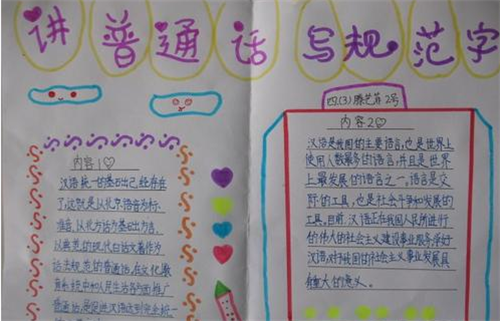 讲普通话 写规范字
内容1
汉语统一的基础已经存在
了,这就是以北京语音为标
准音,以北方话为基础方言,
以典范的现代白话文著作为
语法规范的普通话,在文化教
育系统中和人民生活各方面推广
普通话,是促进汉语达到完全统一
四(3)
2号
内容2
汉语是我国的主要语言,也是世界上
使用人数最多的语言,并且是世界
上最发展的语言之一。语言是交
际的工具,也是社会斗争和发展的
工具,目前,汉语正在为我国人民所进行
的伟大的社会主义建设事业服务,学好
汉语,对于我国的社会主义事业发展具
有重大的意义。